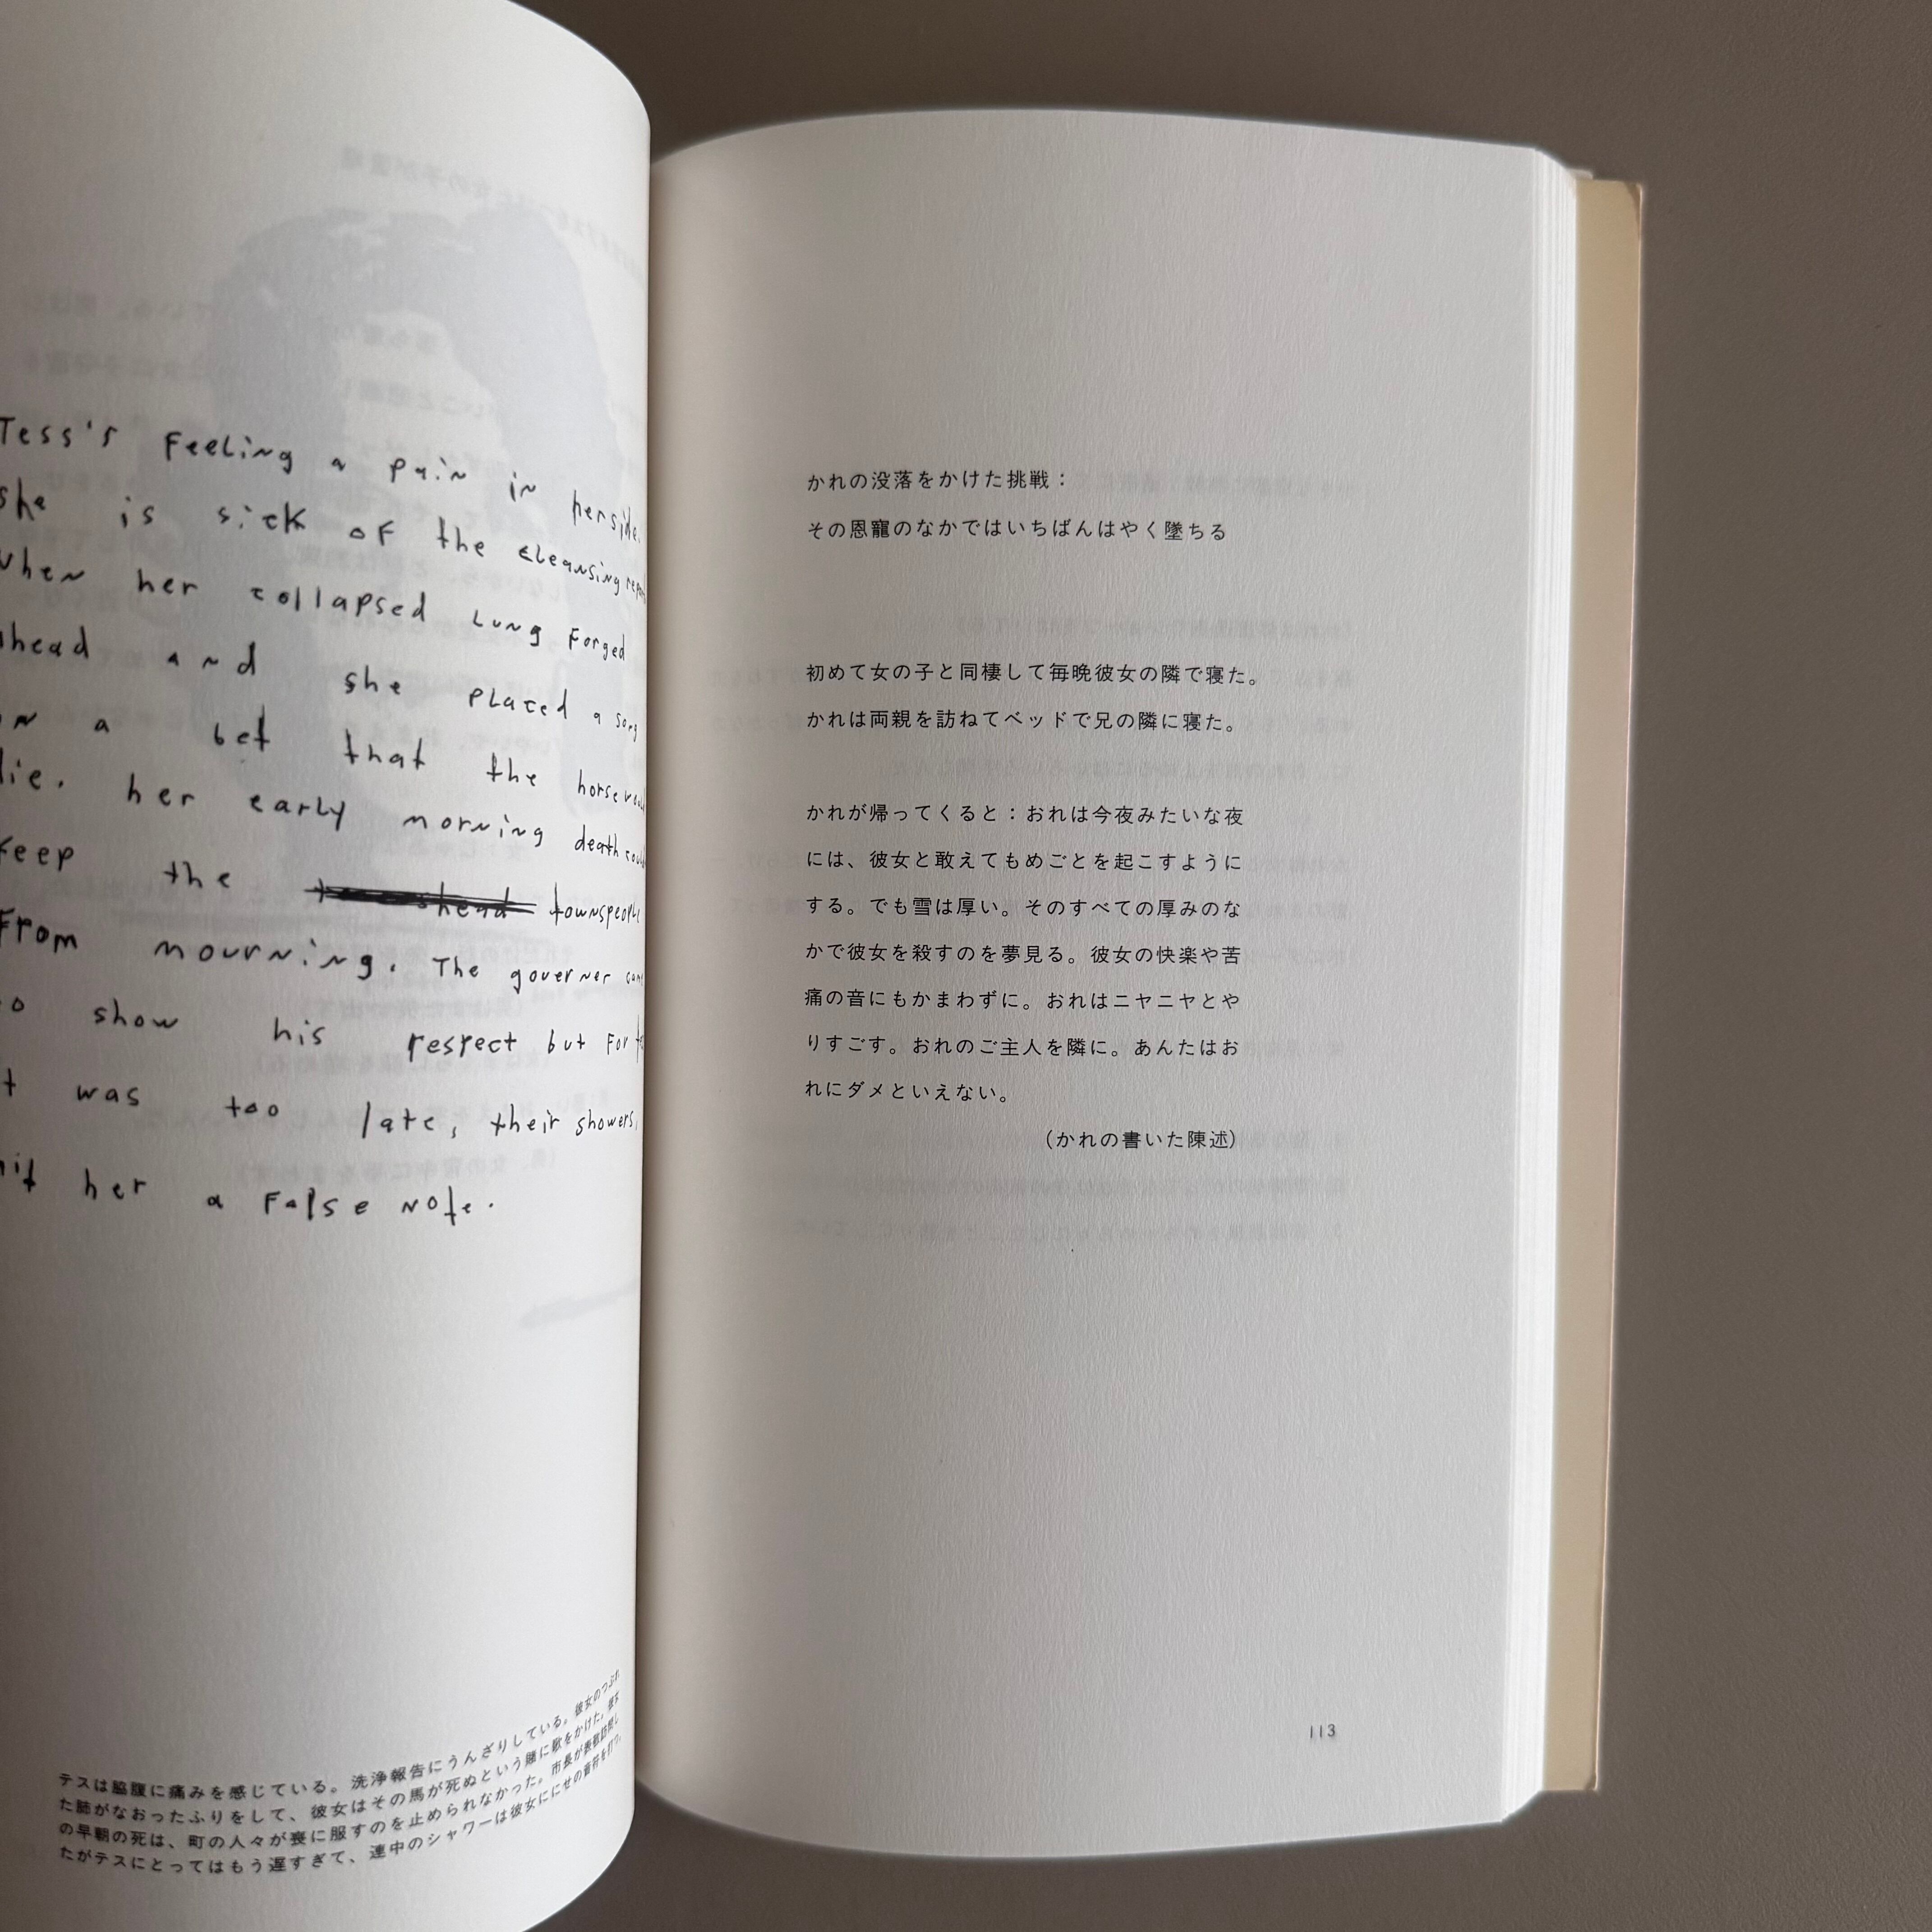 Tess's Feeling a pain in herside.
she is sick of the cleansing
when her collapsed Lung Forged
ahead and she placed a song
on a bet that the horse would
die. her early morning death could
keep the townspeople
From mourning. The governer came
to show his respect but For
it was too late, their showers,
hit her a False note.
テスは脇腹に痛みを感じている。洗浄報告にうんざりしている。彼女のつぶれ
た肺がなおったふりをして、彼女はその馬が死ぬという賭に歌をかけた。彼女
の早朝の死は、町の人々が喪に服すのを止められなかった。市長が表敬訪問し
たがテスにとってはもう遅すぎて、連中のシャワーは彼女ににせの音符を打つ。
かれの没落をかけた挑戦：
その恩寵のなかではいちばんはやく墜ちる
初めて女の子と同棲して毎晩彼女の隣で寝た。
かれは両親を訪ねてベッドで兄の隣に寝た。
かれが帰ってくると：おれは今夜みたいな夜
には、彼女と敢えてもめごとを起こすように
する。でも雪は厚い。そのすべての厚みのな
かで彼女を殺すのを夢見る。彼女の快楽や苦
痛の音にもかまわずに。おれはニヤニヤとや
りすごす。おれのご主人を隣に。あんたはお
れにダメといえない。
（かれの書いた陳述）
113